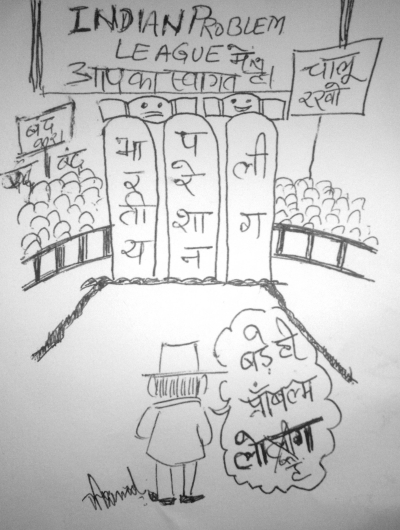 INDIAN PROBLEM
LEAGUE में
आपका स्वागत है।
चालू
रखो
बंद
करो
बंद
भारतीय
परेशान
लीग
बड़े ही
प्रॉबल्म